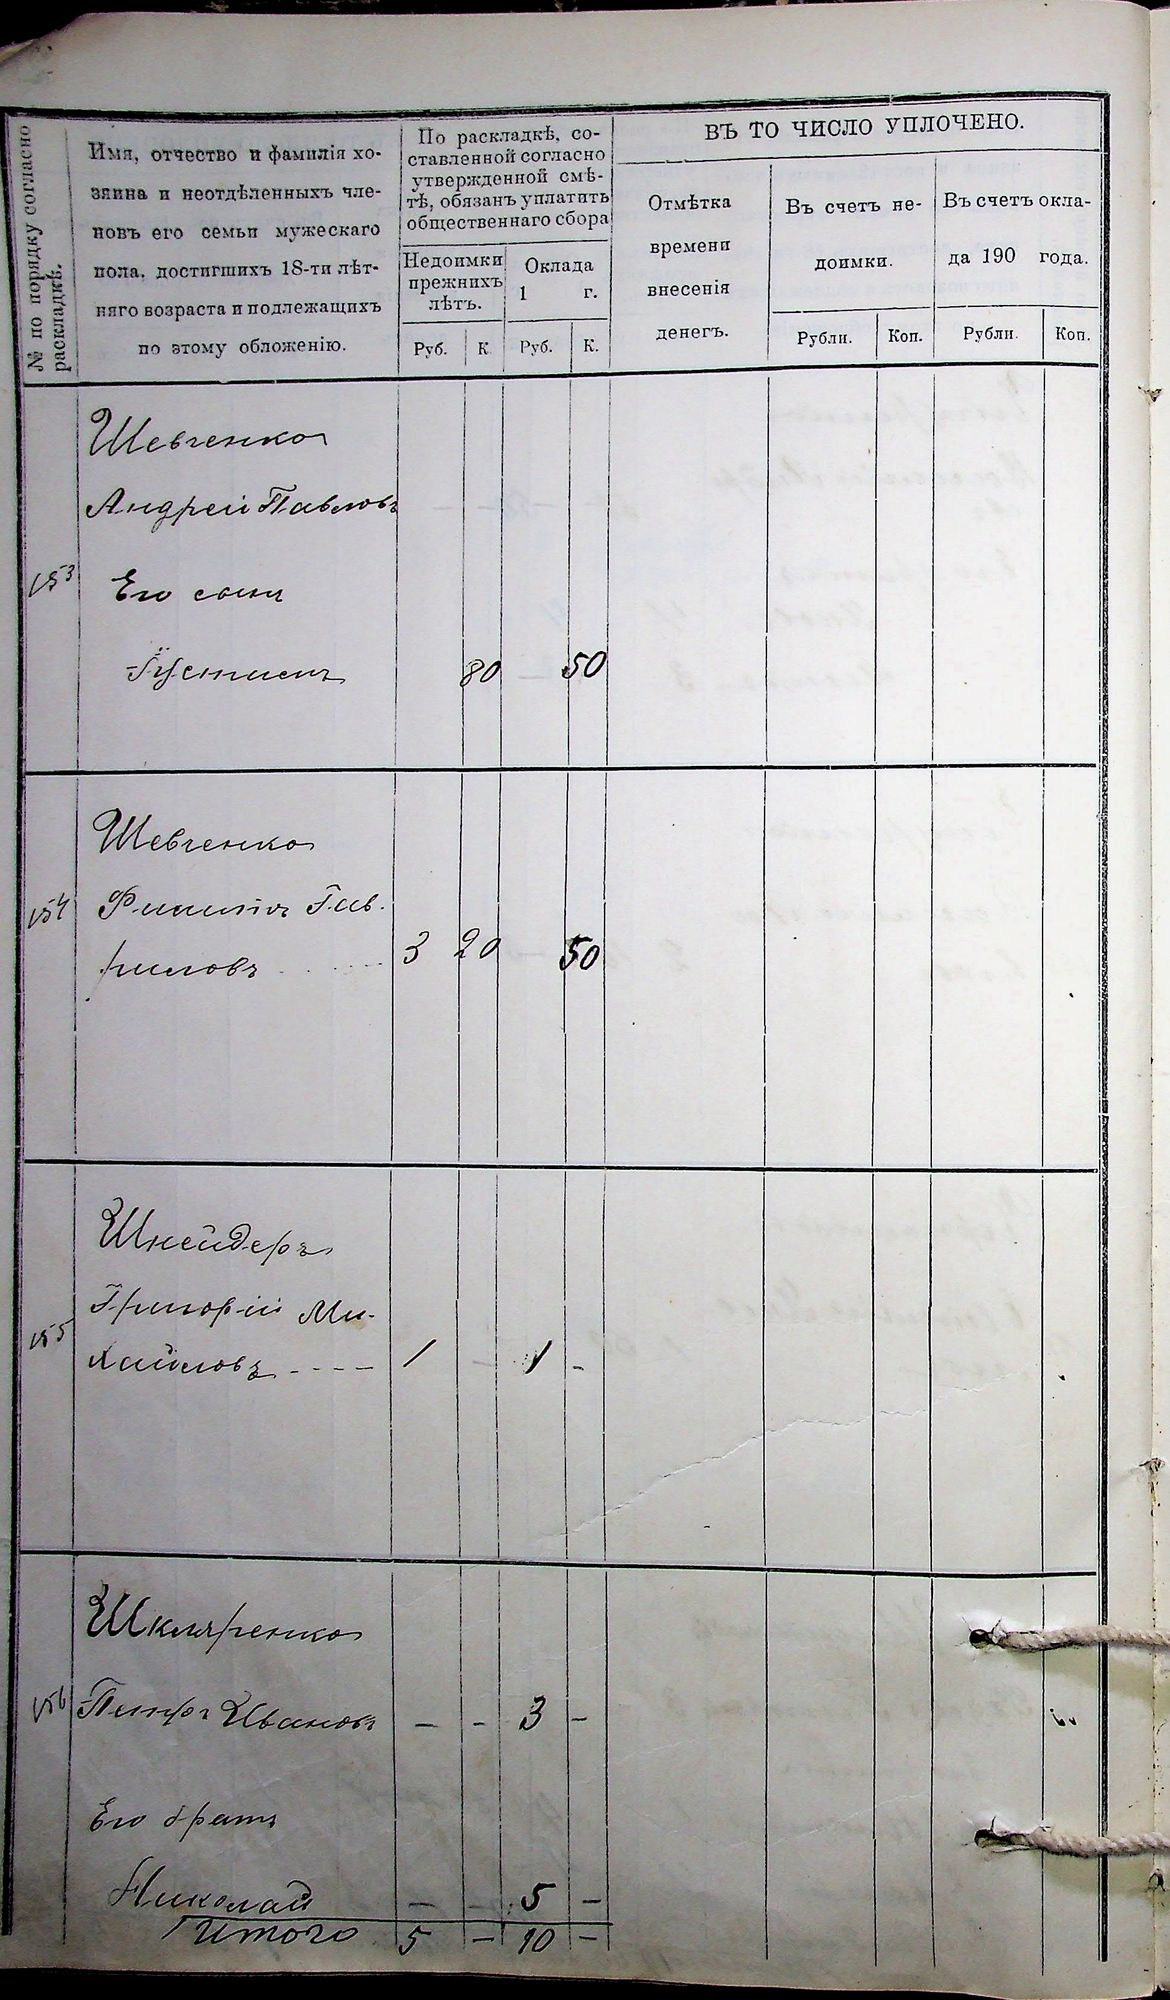 № по порядку согласно
раскладкѣ.
Имя, отчество и фамилія хо-
зяина и неотдѣленныхъ чле-
новъ его семьи мужескаго
пола, достигшихъ 18-ти лѣт-
няго возраста и подлежащихъ
по этому обложенію.
По раскладкѣ, со-
ставленной согласно
утвержденной смѣ-
тѣ, обязанъ уплатить
общественнаго сбора
Недоимки
прежнихъ
лѣтъ.
Оклада
1 г.
Руб. К. Руб. К.
ВЪ ТО ЧИСЛО УПЛОЧЕНО.
Отмѣтка
времени
внесенія
денегъ.
Въ счетъ не-
доимки.
Въ счетъ окла-
да 190 года.
Рубли. Коп. Рубли. Коп.
Шевченко
Андрей Павловъ
153 Его сынъ
Густинъ 80 50
Шевченко
154 Филиппъ Гав-
риловъ 3 20 50
Шнейдеръ
155 Григорій Ми-
хайловъ ---- 1 - 1 -
Шкляренко
156 Петръ Ивановъ - - 3 -
Его братъ
Николай - - 5 -
Итого 5 - 10 -